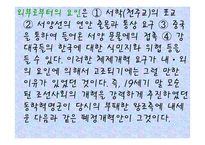 외부로부터의 요인은 ① 서학(천주교)의 포교
② 서양선의 연안 출몰과 통상 요구 ③ 중국
을 통하여 들어온 서양 문물에의 접촉 ④ 강
대국들의 한국에 대한 식민지화 위협 등을
들 수 있다. 이러한 체제개혁 요구가 내·외
의 요인에 의해서 고조되기에는 그럴 만한
이유가 있었던 것이다. 즉, 19세기 말 모순
된 조선사회의 개혁을 강력하게 추진하였던
동학혁명군이 당시의 부패한 탐관오리에 내세
운 다음과 같은 폐정개혁안이 그것이다.